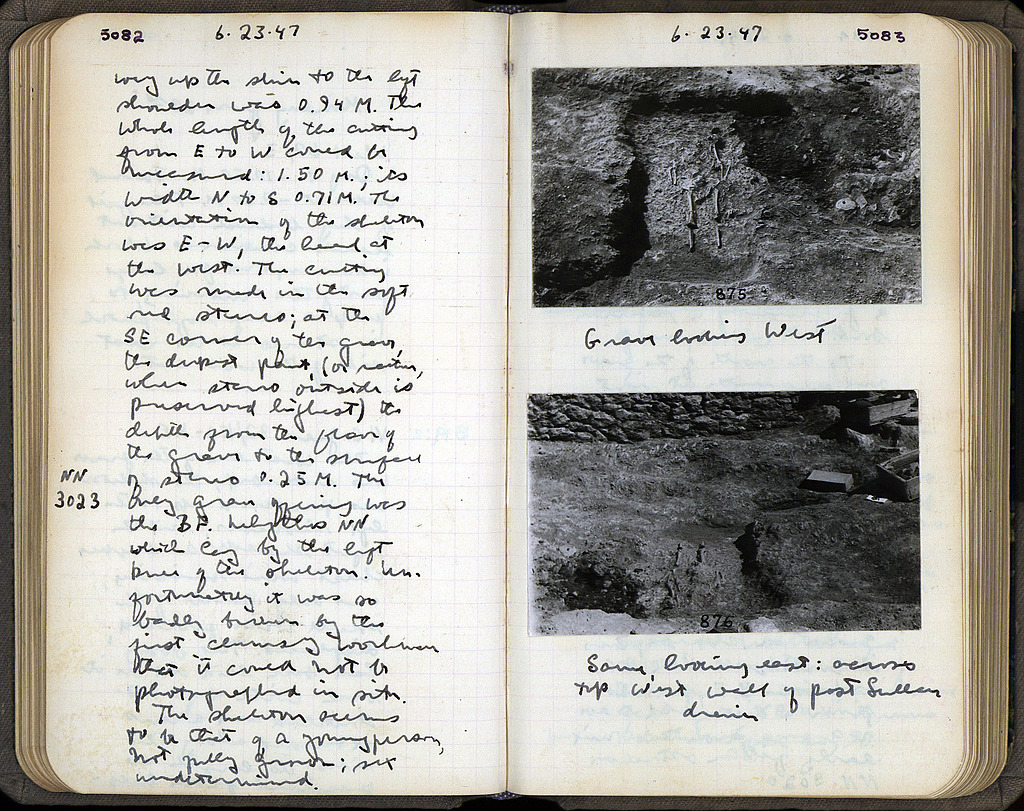 5082
6.23.47
way up the shin to the left
shoulder was 0.94 M. The
whole length of the cutting
from E to W could be
measured: 1.50 M.; its
width N to S 0.71 M. The
orientation of the skeleton
was E-W, the head at
the West. The cutting
was made in the soft
red stereo; at the
SE corner of the grave,
the deepest point, (or rather,
where stereo outside is
preserved highest) the
depth from the floor of
the grave to the surface
of stereo 0.25 M. The
only grave offering was
the BF. lekythos NN
which lay by the left
knee of the skeleton. Un-
fortunately it was so
badly broken by the
first clumsy workman
that it could not be
photographed in situ.
The skeleton seems
to be that of a young person,
not fully grown; sex
undetermined.
NN
3023
6.23.47
5083
875
Grave looking West
876
Same, looking east: across
top West wall of post Sullan
drain